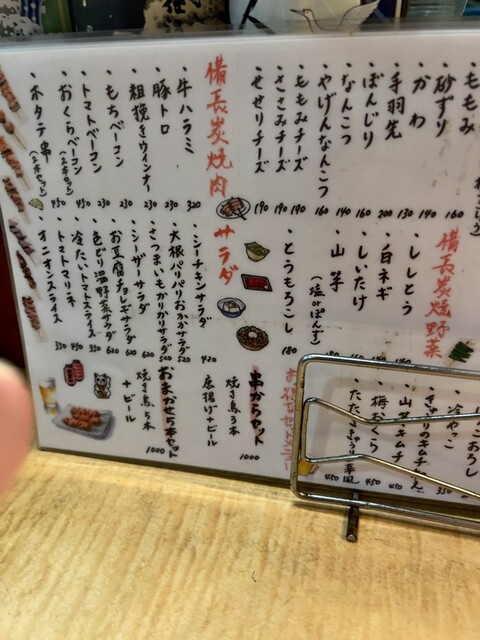 ももみ
砂ずり 160
かわ 140
手羽先 130
ぼんじり 200
なんこつ 160
やげんなんこつ 160
ももみチーズ 190
ささみチーズ 190
せせりチーズ 190
備長炭焼肉
牛ハラミ 320
豚トロ 230
粗挽きウィンナー 230
もちベーコン 230
トマトベーコン 230
おくらベーコン (2本セット) 450
ホタテ串 (2本セット) 450
備長炭焼野菜
ししとう
白ネギ
しいたけ
山芋 (塩orぽんず)
とうもろこし 180
サラダ
シーチキンサラダ 420
大根パリパリおかかサラダ 520
さつまいもかりかりサラダ 520
シーザーサラダ 620
お豆腐チョレギサラダ 620
色どり温野菜サラダ 620
冷たいトマトスライス 330
トマトマリネ 450
オニオンスライス 350
おろし
冷やっこ
きゅうりのキムチ
山芋キムチ 450
梅おくら 450
たたききゅうり中華風 450
串からセット 1000
焼き鳥3本
唐揚げ+ビール
おまかせ5本セット 1000
焼き鳥5本
+ビール